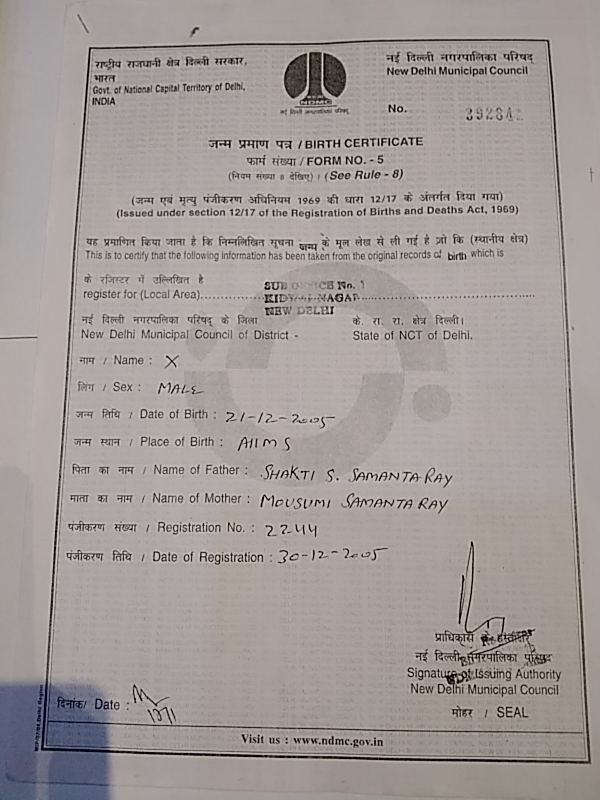 राष्ट्रीय राजधानी क्षेत्र दिल्ली सरकार,
भारत
Govt. of National Capital Territory of Delhi,
INDIA
NDMC
नई दिल्ली नगरपालिका परिषद्
New Delhi Municipal Council
No. 39284
जन्म प्रमाण पत्र / BIRTH CERTIFICATE
फार्म संख्या / FORM NO. - 5
(नियम संख्या 8 देखिए) / (See Rule - 8)
(जन्म एवं मृत्यु पंजीकरण अधिनियम 1969 की धारा 12/17 के अंतर्गत दिया गया)
(Issued under section 12/17 of the Registration of Births and Deaths Act, 1969)
यह प्रमाणित किया जाता है कि निम्नलिखित सूचना जन्म के मूल लेख से ली गई है जो कि (स्थानीय क्षेत्र)
This is to certify that the following information has been taken from the original records of birth which is
के रजिस्टर में उल्लिखित है
SUB OFFICE No. 1
register for (Local Area) KIDWAI NAGAR
NEW DELHI
नई दिल्ली नगरपालिका परिषद के जिला के. रा. रा. क्षेत्र दिल्ली।
New Delhi Municipal Council of District - State of NCT of Delhi.
नाम / Name : X
लिंग / Sex : MALE
जन्म तिथि / Date of Birth : 21-12-2005
जन्म स्थान / Place of Birth : AIIMS
पिता का नाम / Name of Father : SHAKTI S. SAMANTA RAY
माता का नाम / Name of Mother : MOUSUMI SAMANTA RAY
पंजीकरण संख्या / Registration No. : 2244
पंजीकरण तिथि / Date of Registration : 30-12-2005
प्राधिकारी के हस्ताक्षर
नई दिल्ली नगरपालिका परिषद
Signature of Issuing Authority
New Delhi Municipal Council
दिनांक/ Date :
मोहर / SEAL
Visit us : www.ndmc.gov.in